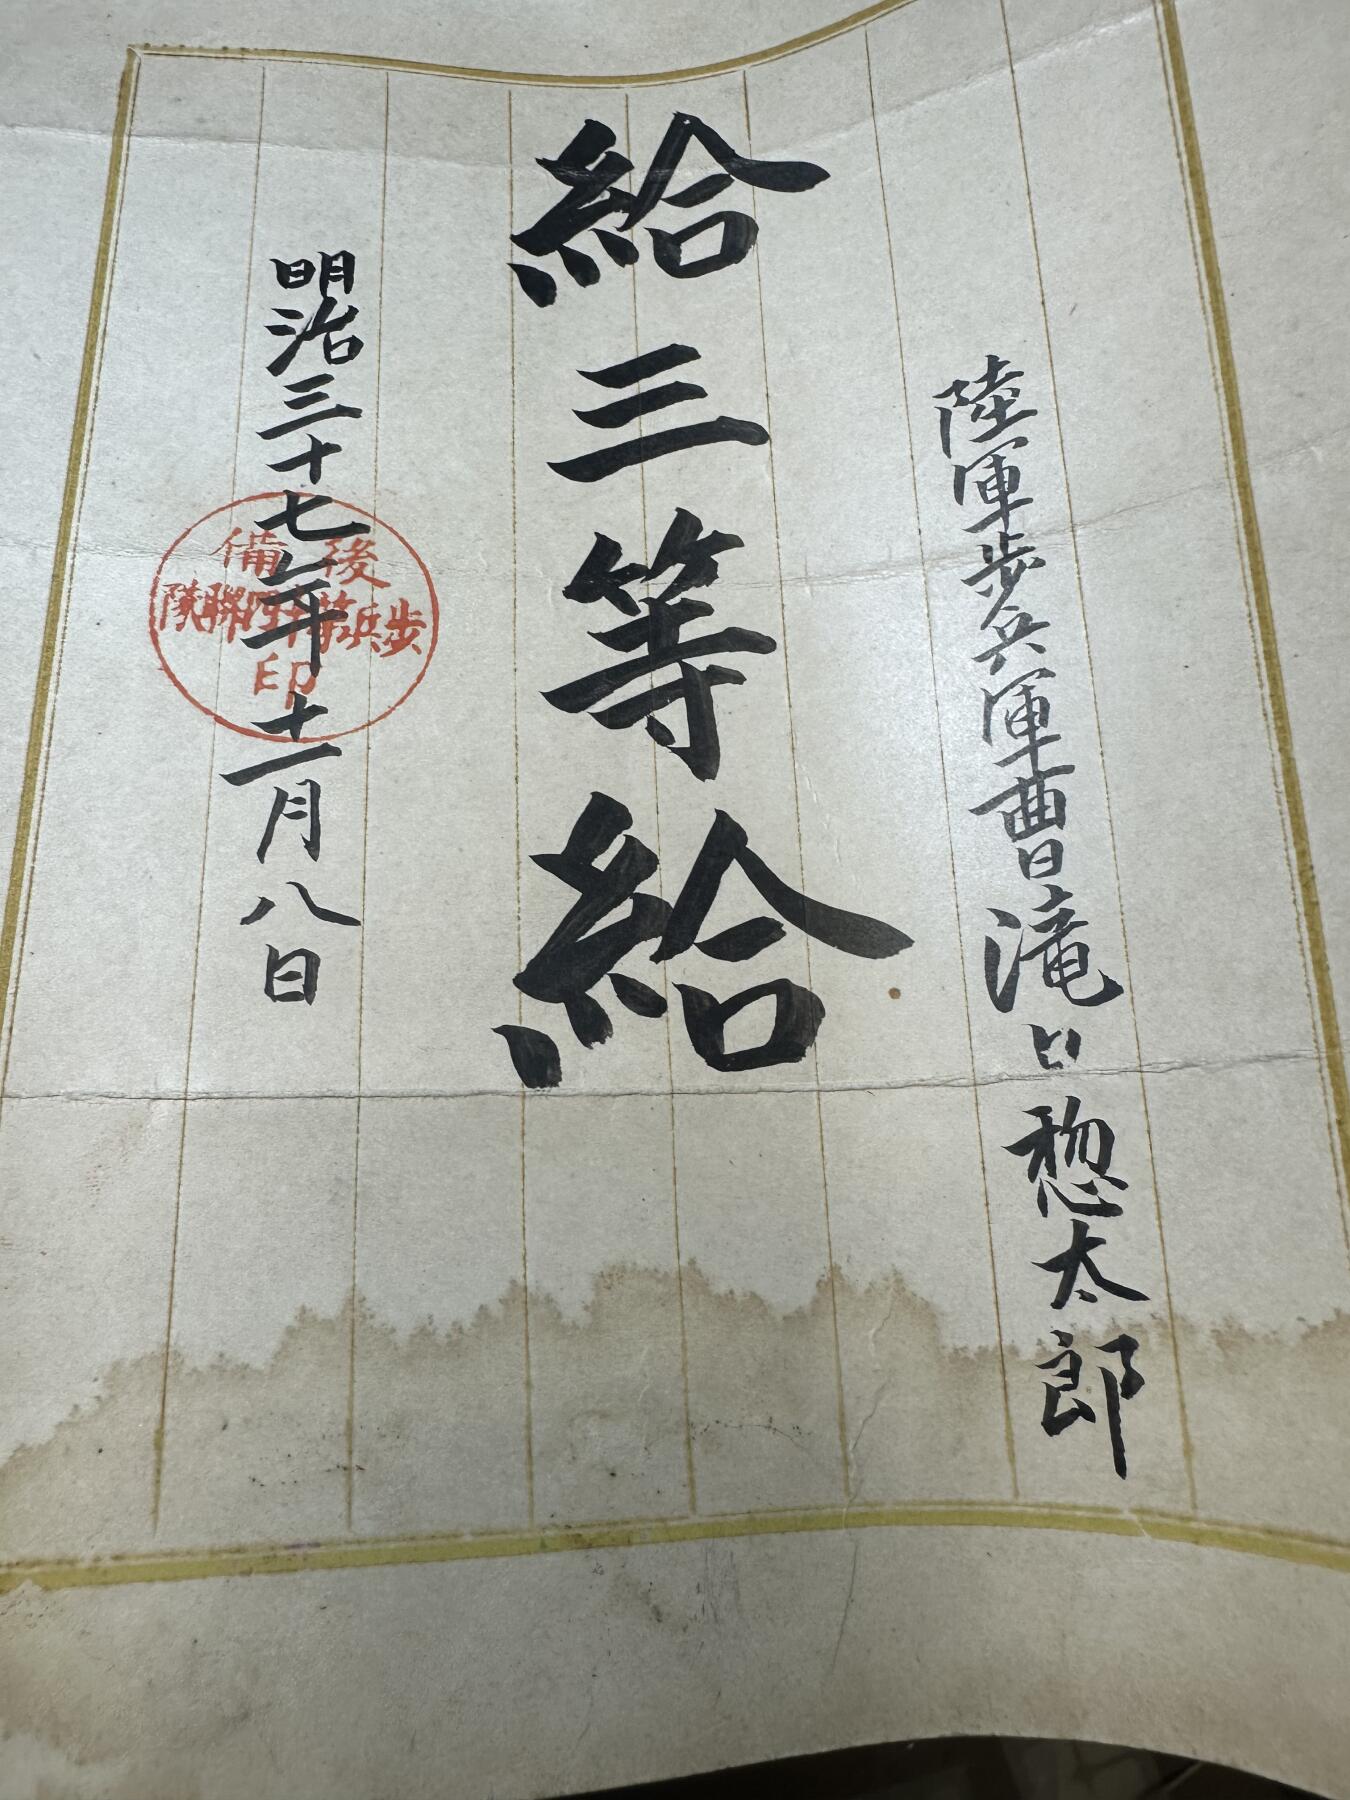 陸軍歩兵軍曹滝口惣太郎
給三等給
明治三十七年十一月八日
後備
歩兵第
聯隊
印